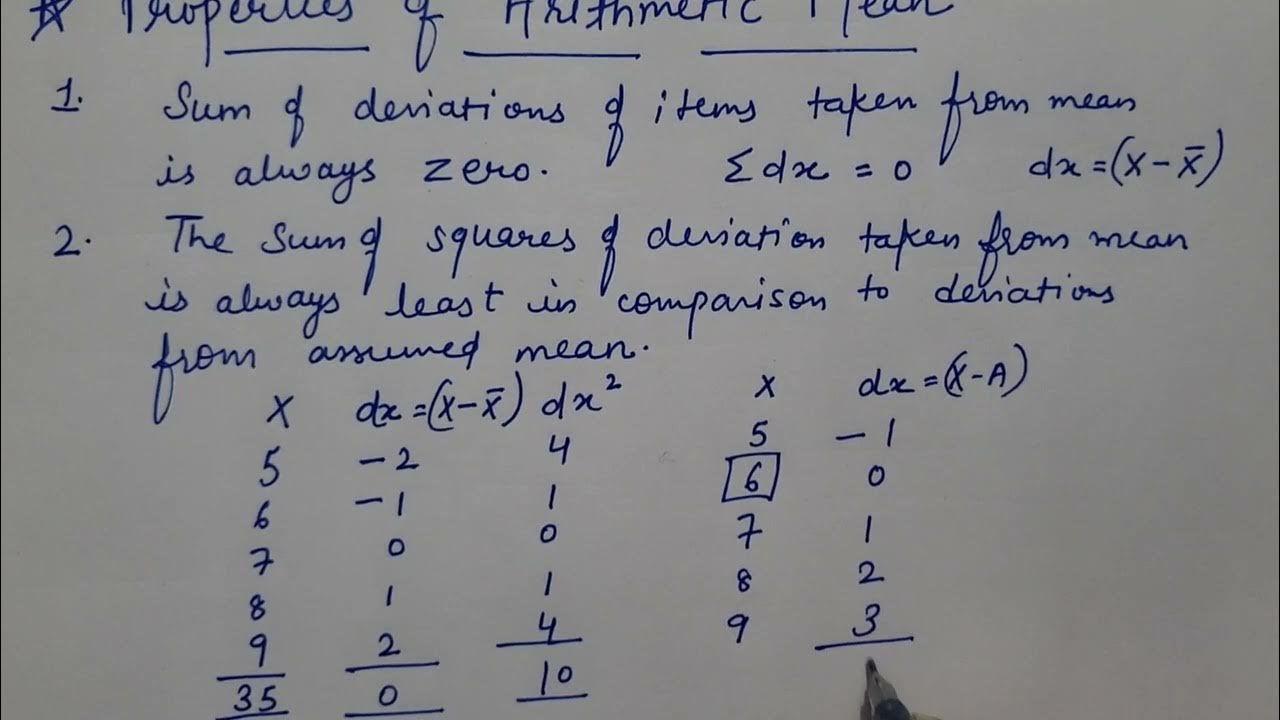 ☆ Properties of Arithmetic Mean
1. Sum of deviations of items taken from mean
is always zero. Σdx = 0 dx = (X - X̄)
2. The Sum of squares of deviation taken from mean
is always least in comparison to deviations
from assumed mean.
X dx = (X - X̄) dx² X dx = (X - A)
5 -2 4 5 -1
6 -1 1 6 0
7 0 0 7 1
8 1 1 8 2
9 2 4 9 3
35 0 10